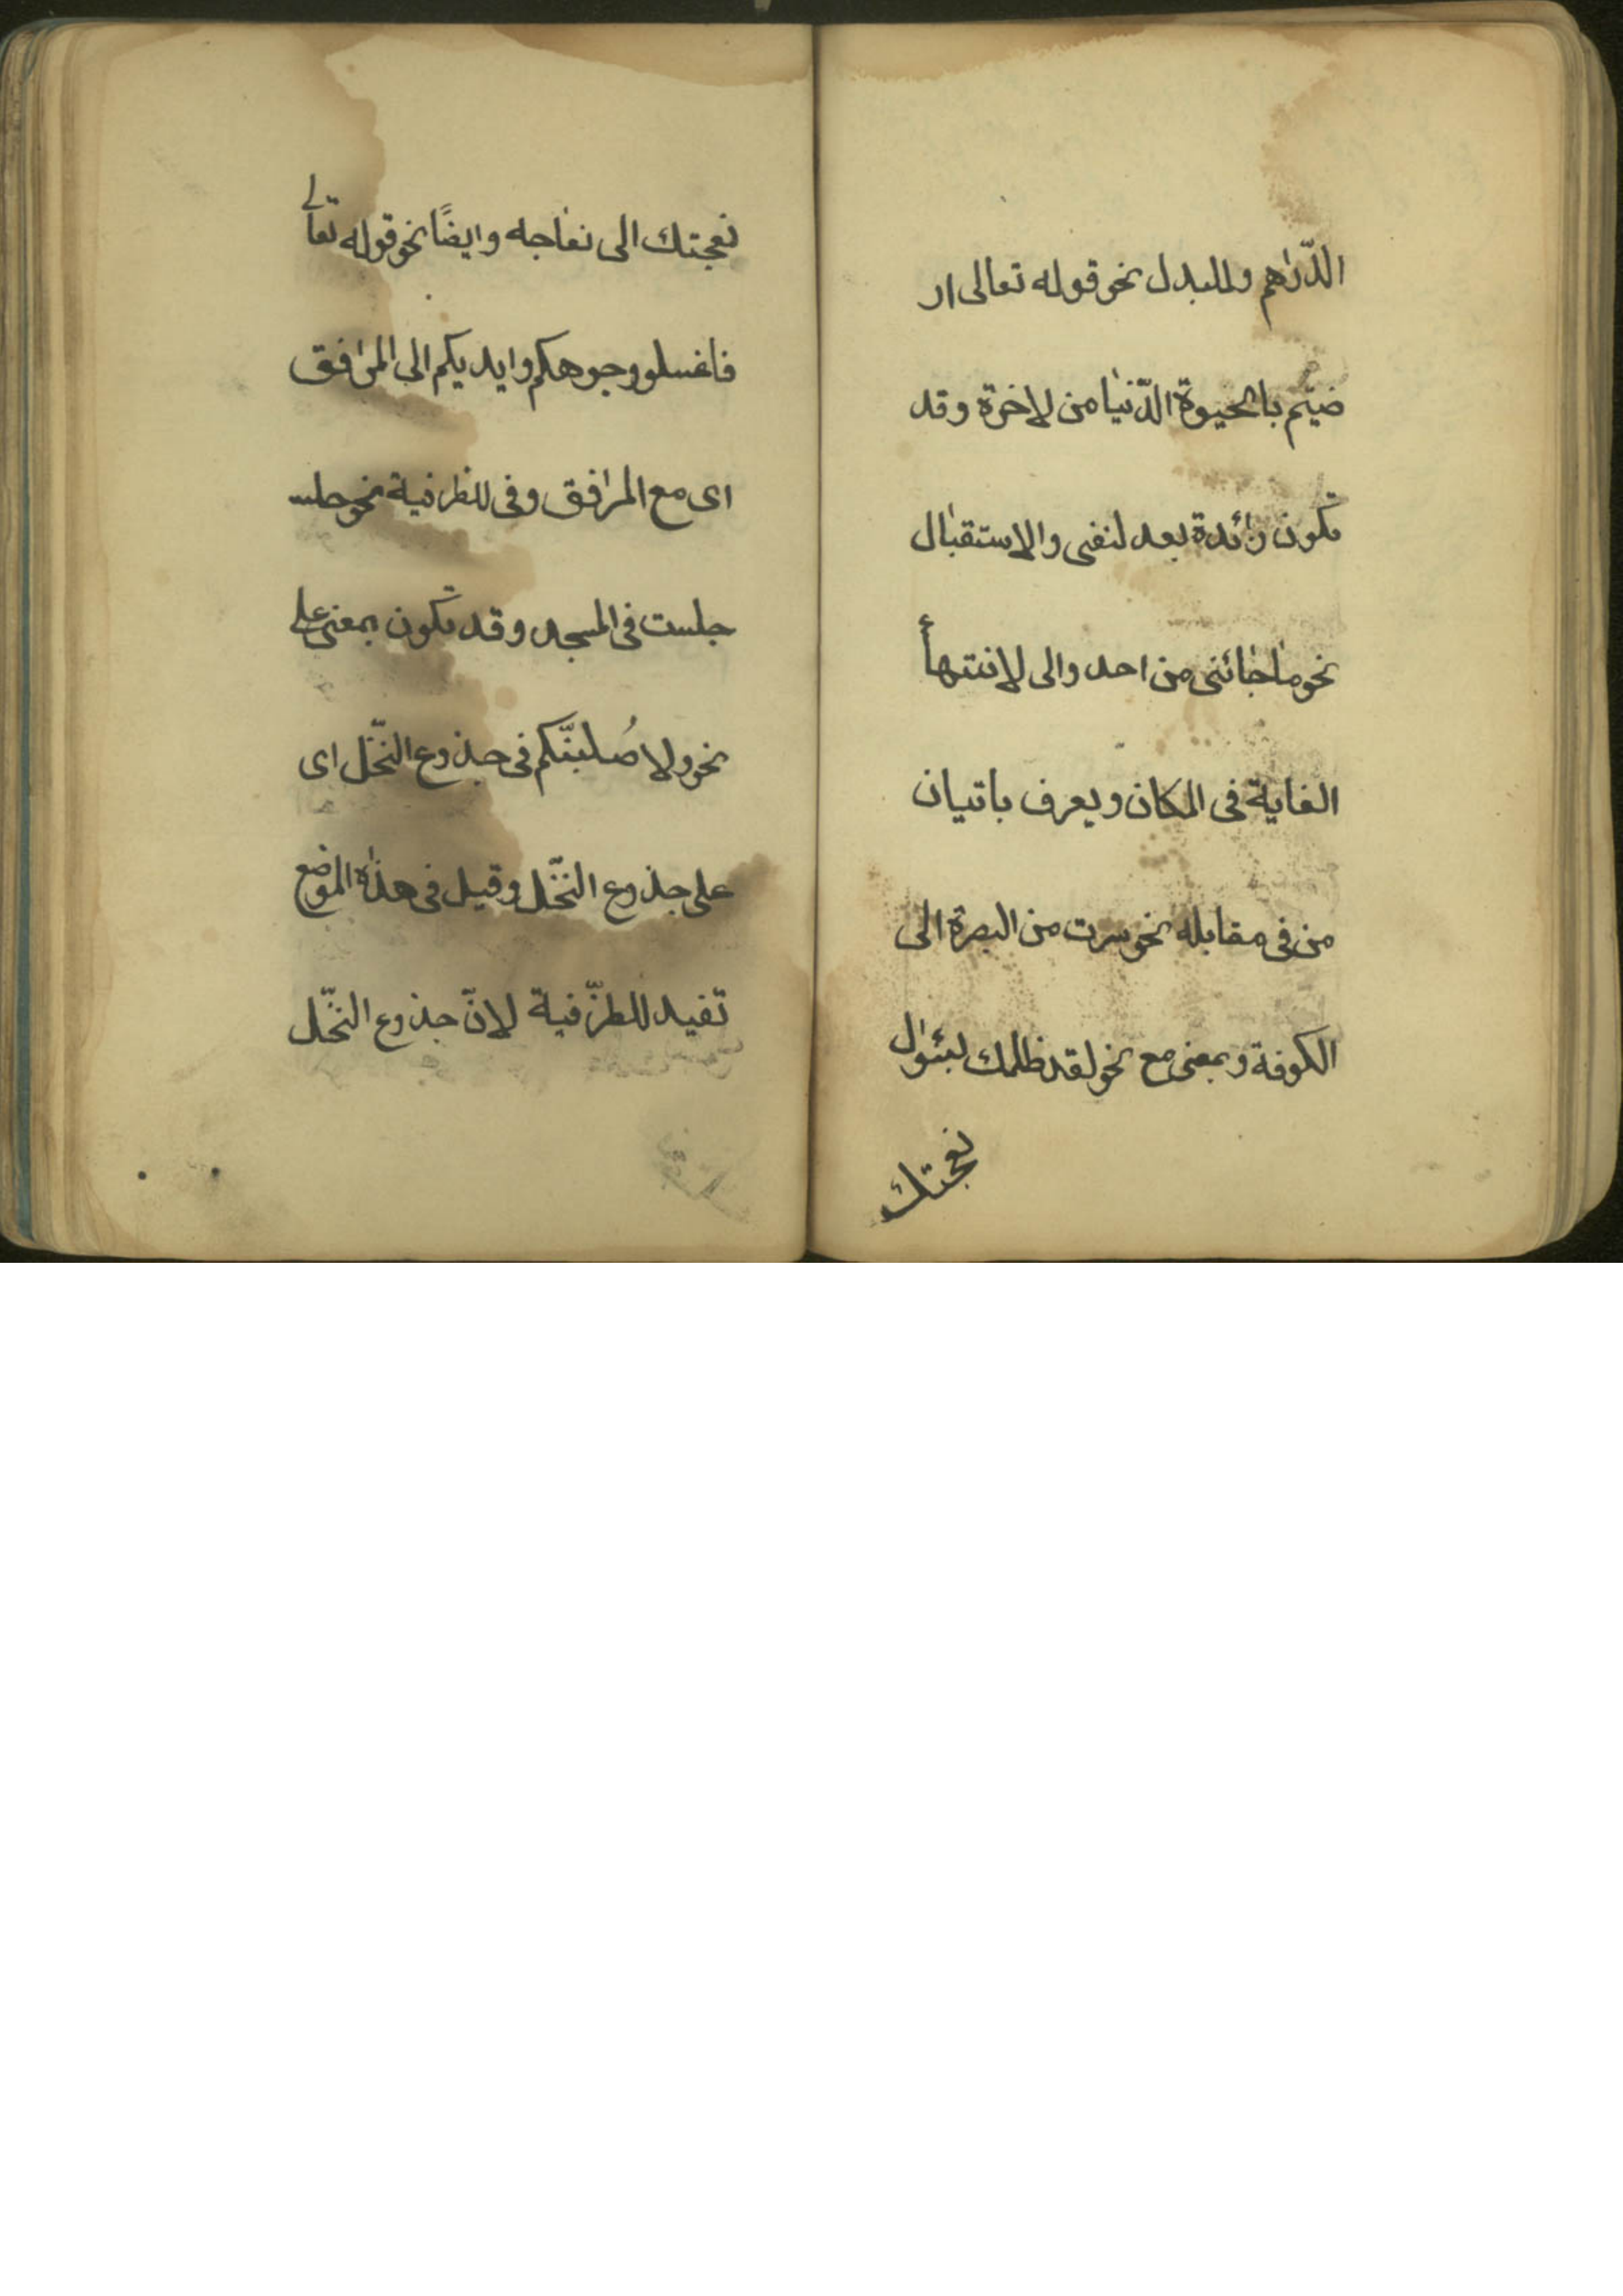 الدّراهم وللبدل نحو قوله تعالى ار
ضيتم بالحيوة الدّنيا من لاخرة وقد
تكون زائدة بعد لنفى والاستقبال
نحو ما جائنى من احد والى لانتهاأ
الغاية فى المكان ويعرف باتيان
من فى مقابله نحو سرت من البصرة الى
الكوفة وبمعنى مع نحو لقد ظلمك لبسئوال
نعجتك
نعجتك الى نعاجه وايضًا نحو قوله تعالى
فاغسلو وجوهكم وايديكم الى المرافق
اى مع المرافق وفى للظرفية نحو جلست
جلست فى المسجد وقد تكون بمعنى على
نحو ولا صُلبنّكم فى جذوع النّخل اى
على جذوع النّخل وقيل فى هذاه الموضع
تفيد للظرّفية لانّ جذوع النّخل